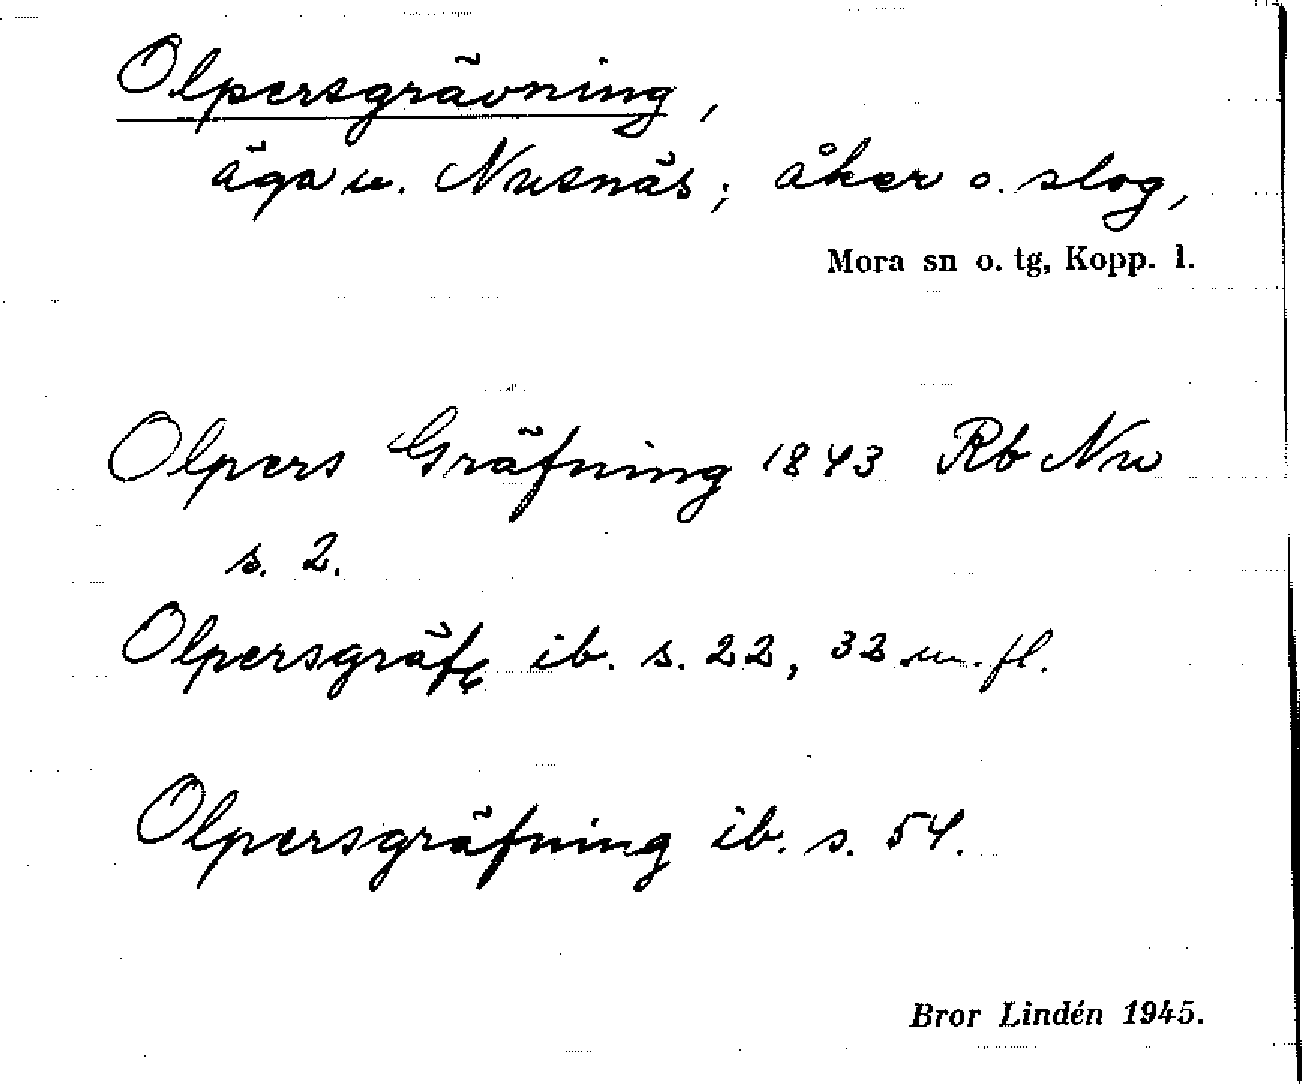 Olpersgrävning,
äga u. Nusnäs; åker o. slog,
Mora sn o. tg, Kopp. l.
Olpers Gräfning 1843 Rb Nu
s. 2.
Olpersgräfg ib. s. 22, 32 m. fl.
Olpersgräfning ib. s. 54.
Bror Lindén 1945.